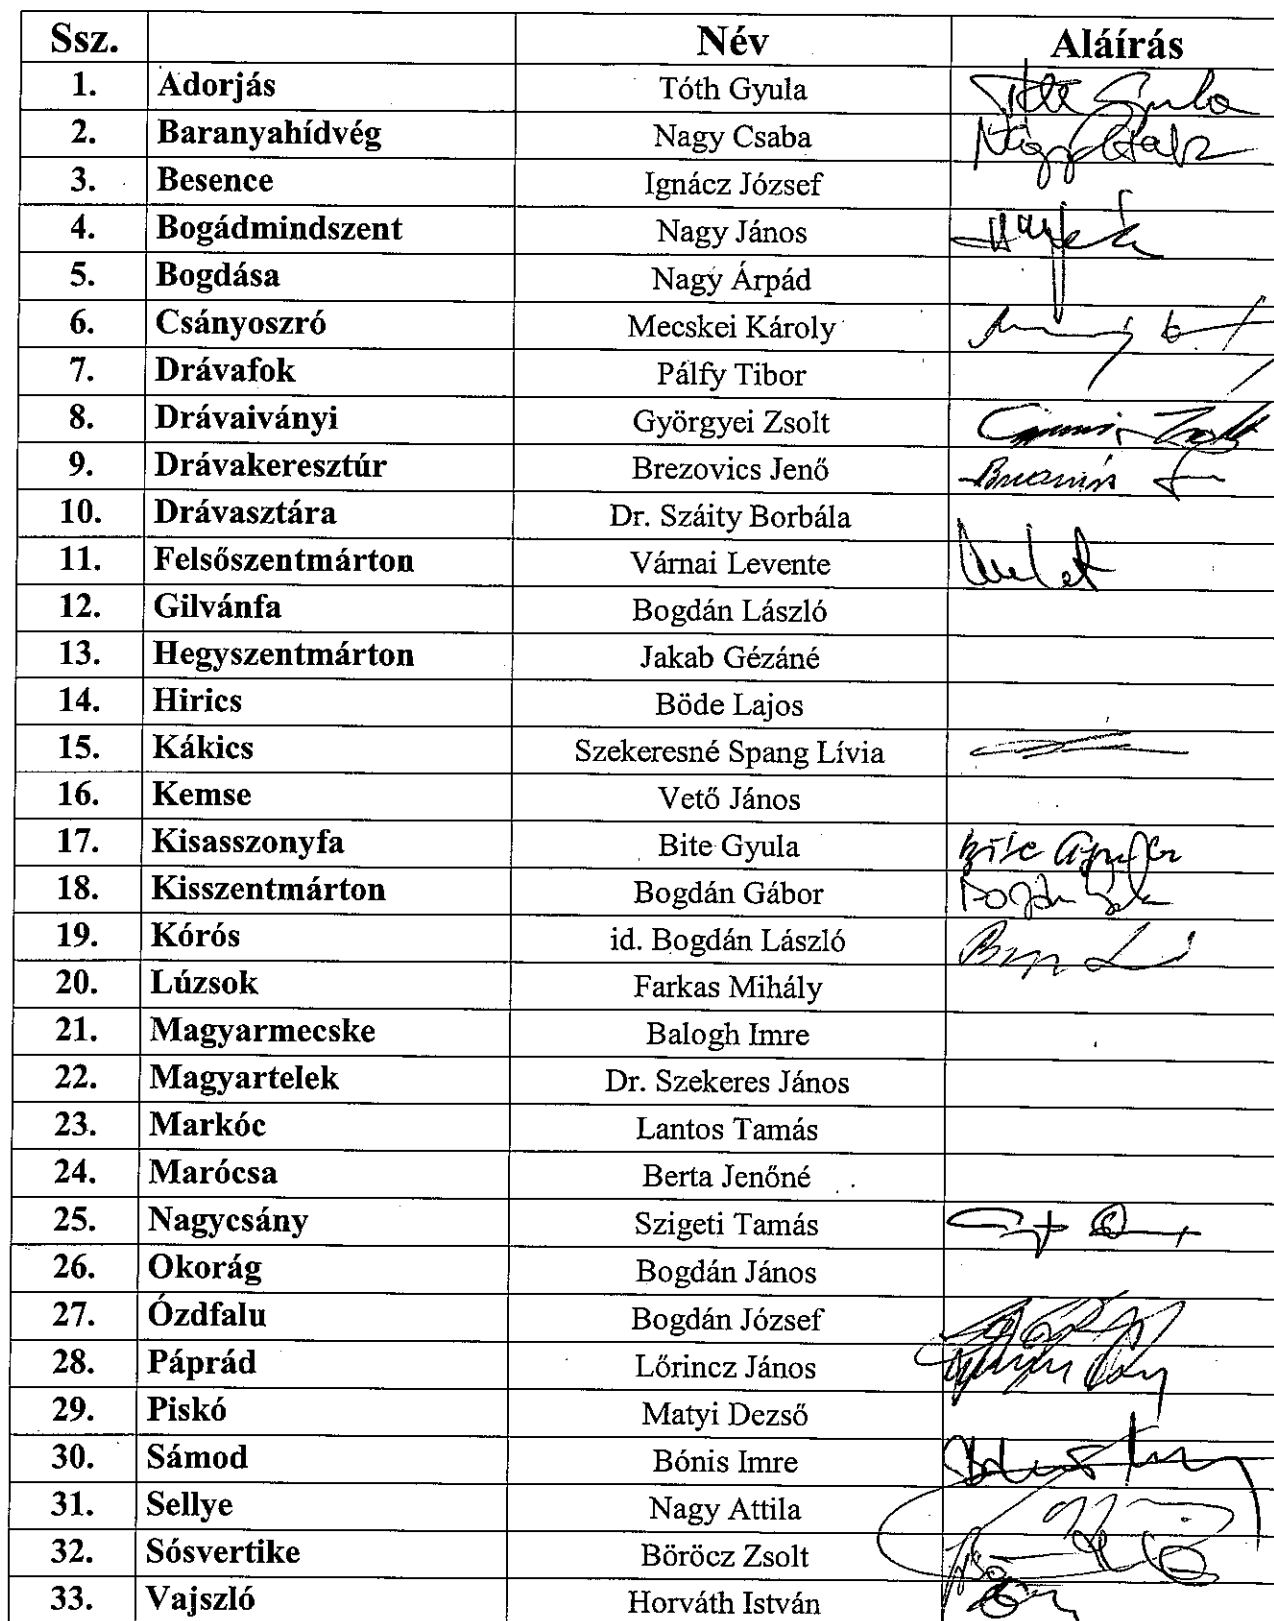 Ssz. Név Aláírás
1. Adorjás Tóth Gyula Tóth Gyula
2. Baranyahídvég Nagy Csaba Nagy Csaba
3. Besence Ignácz József
4. Bogádmindszent Nagy János
5. Bogdása Nagy Árpád
6. Csányoszró Mecskei Károly
7. Drávafok Pálfy Tibor
8. Drávaiványi Györgyei Zsolt
9. Drávakeresztúr Brezovics Jenő
10. Drávasztára Dr. Száity Borbála
11. Felsőszentmárton Várnai Levente
12. Gilvánfa Bogdán László
13. Hegyszentmárton Jakab Gézáné
14. Hirics Böde Lajos
15. Kákics Szekeresné Spang Lívia
16. Kemse Vető János
17. Kisasszonyfa Bite Gyula Bite Gyula
18. Kisszentmárton Bogdán Gábor
19. Kórós id. Bogdán László
20. Lúzsok Farkas Mihály
21. Magyarmecske Balogh Imre
22. Magyartelek Dr. Szekeres János
23. Markóc Lantos Tamás
24. Marócsa Berta Jenőné
25. Nagycsány Szigeti Tamás
26. Okorág Bogdán János
27. Ózdfalu Bogdán József
28. Páprád Lőrincz János
29. Piskó Matyi Dezső
30. Sámod Bónis Imre
31. Sellye Nagy Attila
32. Sósvertike Böröcz Zsolt
33. Vajszló Horváth István